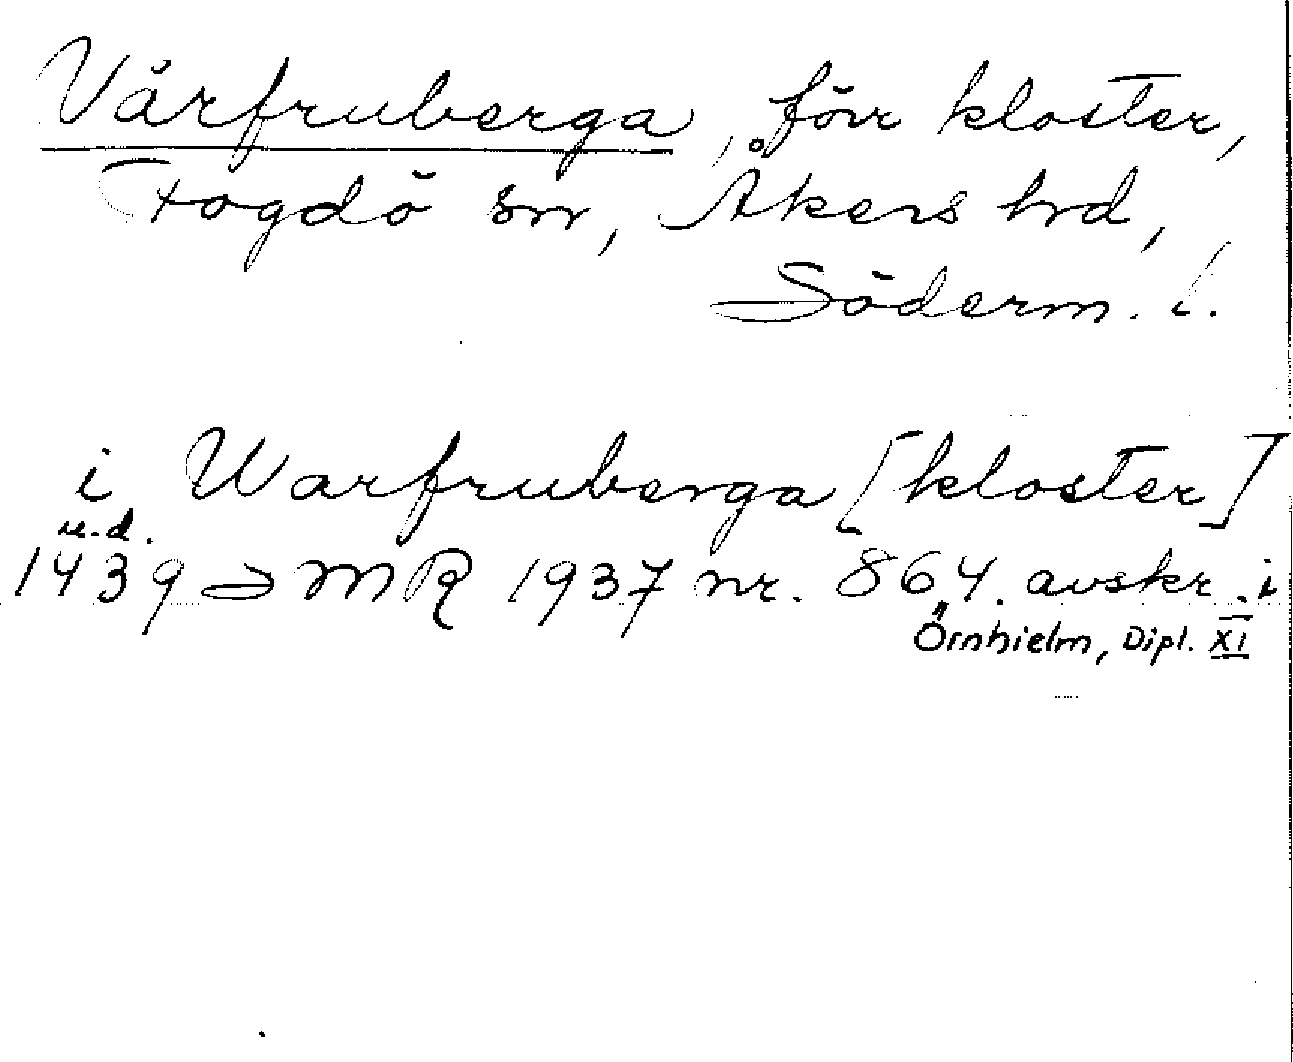 Vårfruberga, förr kloster,
Fogdö sn, Åkers hrd,
Söderm. l.
i Warfruberga [kloster]
u.d.
1439 SMR 1937 nr. 864. avskr. i
Örnhielm, Dipl. XI